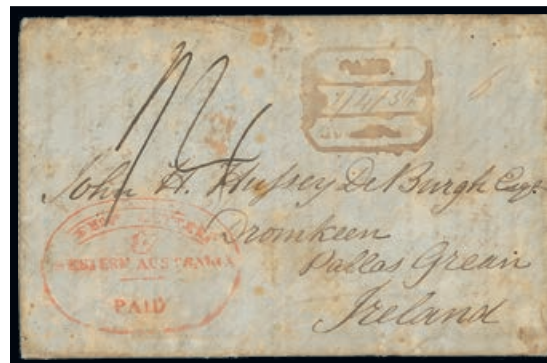 PAID
John H. Hussey De Burgh Esqr.
Dromkeen
Pallas Grean
Ireland
WESTERN AUSTRALIA
PAID